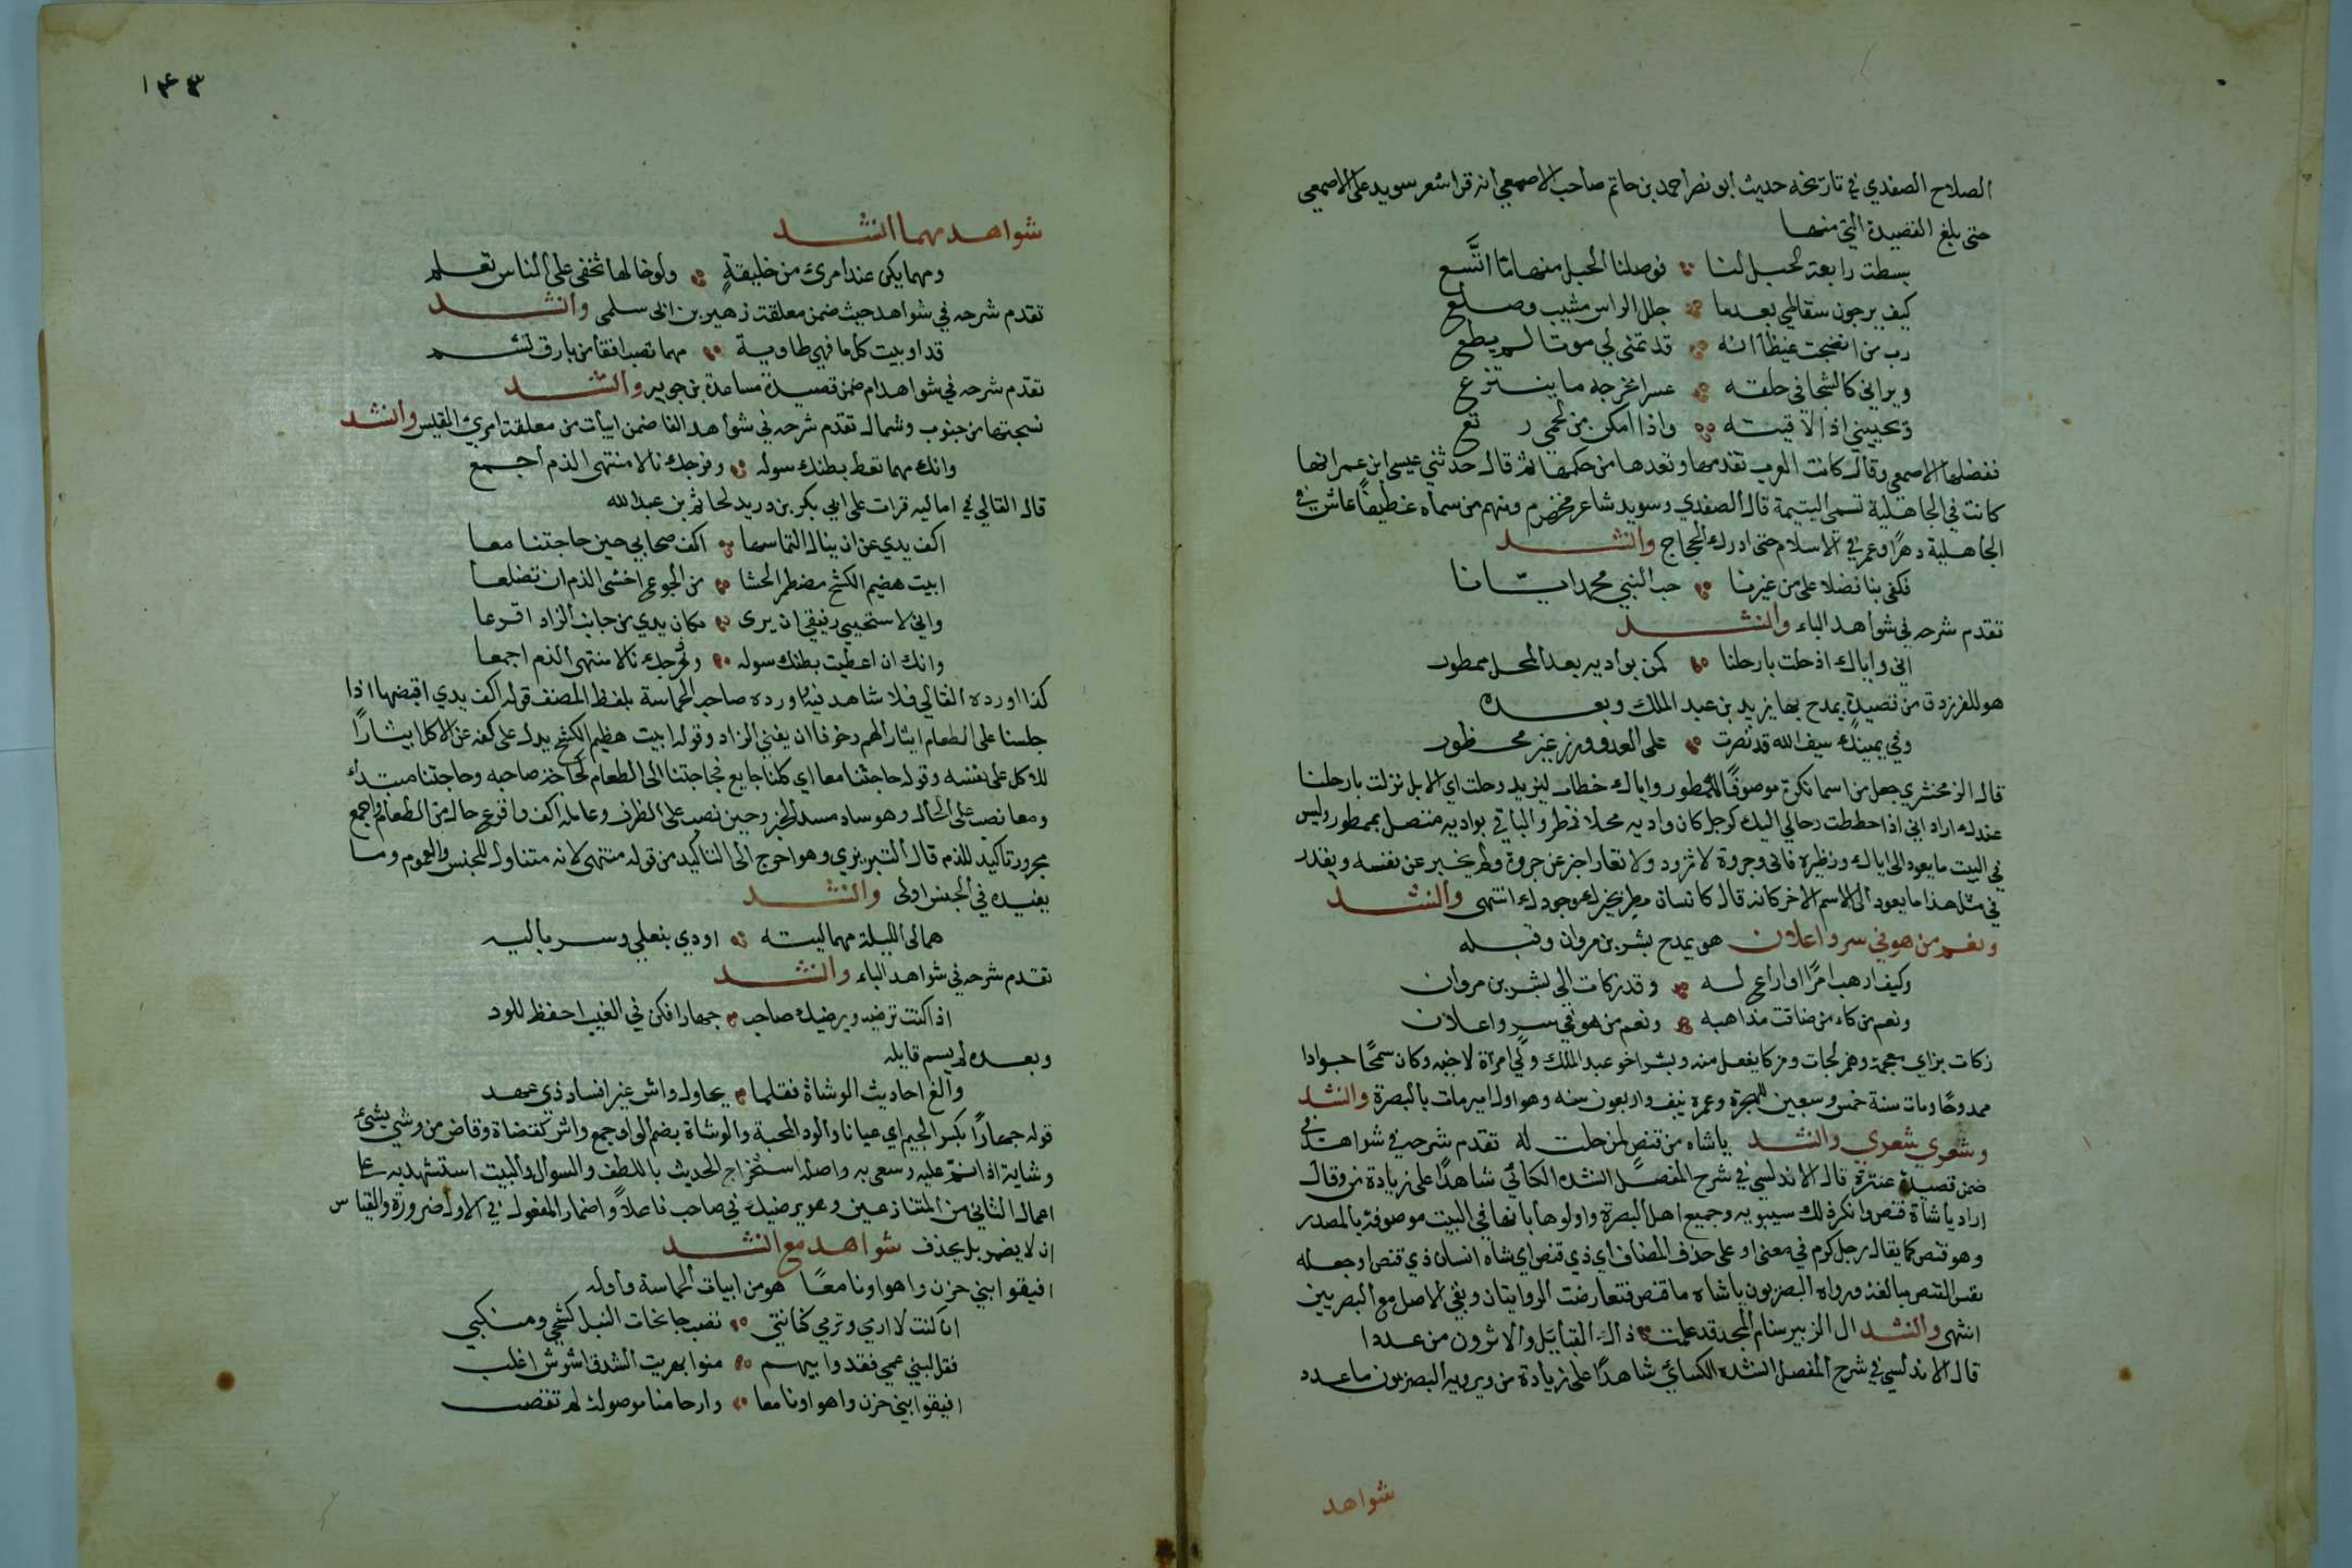 الصلاح الصفدي في تاريخه حديث ابو نصر احمد بن حاتم صاحب الاصمعي انه قرا شعر سويد على الاصمعي
حتى بلغ القصيدة التي منها
بسطت رابعة الحبل لنا فوصلنا الحبل منها ما اتَّسع
كيف يرجون سقاطي بعدما جلل الراس مشيب وصلع
رب من انضجت غيظا انه قد تمنى لي موتا لم يطع
ويراني كالشجا في حلقه عسرا مخرجه ما ينتزع
ويحييني اذا لاقيته واذا امكن من لحمي رتع
ففضلها الاصمعي وقال كانت العرب تقدمها وتعدها من حكمها ثم قال حدثني عيسى ابن عمر انها
كانت في الجاهلية تسمى اليتيمة قال الصفدي وسويد شاعر مخضرم ومنهم من سماه غطيفا عاش في
الجاهلية دهرًا وعمر في الاسلام حتى ادرك الحجاج وانشد
فكفى بنا فضلا على من غيرنا حب النبي محمد ايّانا
تقدم شرحه في شواهد الباء وانشد
اني واياك اذ حلت بارحلنا كمن بواديه بعد المحل ممطور
هو للفرزدق من قصيدة يمدح بها يزيد بن عبد الملك وبعده
وفي يمينك سيف الله قد نصرت على العدو ورزق غير محظور
قال الزمخشري جعل من اسما نكرة موصوفًا بممطور واياك خطاب ليزيد وحلت اي الابل نزلت بارحلنا
عندك اراد اني اذا حططت رحالي اليك كرجل كان واديه محلا فمطر والباء في بواديه متصل بممطور وليس
في البيت ما يعود الى اياك ونظيره فاني وجروة لا ترود ولا تعار اخبر عن جروة ولم يخبر عن نفسه ويقدر
في مثل هذا ما يعود الى الاسم الاخر كانه قال كانسان مطر بخيرك وجودك انتهى وانشد
ونعم من هو في سر واعلان هو يمدح بشر بن مروان وقبله
وكيف ارهب امرًا او اراع له وقد زكات الى بشر بن مروان
ونعم مزكاء من ضاقت مذاهبه ونعم من هو في سر واعلان
زكات بزاي معجمة وهمز لجات ومزكا يفعل منه وبشر اخو عبد الملك ولي امرة لاخيه وكان سمحًا جوادا
ممدوحًا ومات سنة خمس وسبعين للهجرة وعمره نيف واربعون سنه وهو اول امير مات بالبصرة وانشد
وشعري شعري وانشد ياشاه من قنص لمن حلت له تقدم شرحه في شواهد في
ضمن قصيدة عنترة قال الاندلسي في شرح المفصل انشده الكسائي شاهدًا على زيادة من وقال
اراد ياشاة قنص وانكر ذلك سيبويه وجميع اهل البصرة واولوها بانها في البيت موصوفة بالمصدر
وهو قنص كما يقال رجل كرم في معنى او على حذف المضاف اي ذي قنص اي شاه انسان ذي قنص او جعله
نفس القنص مبالغة ورواه البصريون ياشاه ما قنص فتعارضت الروايتان وبقي الاصل مع البصريين
انتهى وانشد ال الزبير سنام المجد قد علمت ذاك القبايل والاثرون من عددا
قال الاندلسي في شرح المفصل انشده الكسائي شاهدًا على زيادة من ويرويه البصريون ما عددا
شواهد
١٤٣
شواهد مهما انشد
ومهما يكن عند امرئ من خليقةٍ ولو خالها تخفى على الناس تعلم
تقدم شرحه في شواهد حيث ضمن معلقة زهير بن ابي سلمى وانشد
قد اوبيت كل ما فهي طاوية مهما تصب افقا من بارق تشم
تقدّم شرحه في شواهد ام ضمن قصيدة ساعدة بن جوير وانشد
نسجتها من جنوب وشمال تقدم شرحه في شواهد الفا ضمن ابيات من معلقة امرئ القيس وانشد
وانك مهما تعط بطنك سوله وفرجك نالا منتهى الذم اجمع
قال القالي في اماليه قرات على ابي بكر بن دريد لحاتم بن عبد الله
اكف يدي عن ان ينال التماسها اكف صحابي حين حاجتنا معا
ابيت هضيم الكشح مضطمر الحشا من الجوع اخشى الذم ان تضلعا
واني لاستحيي رفيقي ان يرى مكان يدي من جانب الزاد اقرعا
وانك ان اعطيت بطنك سوله وفرجك نالا منتهى الذم اجمعا
كذا اورده القالي فلا شاهد فيه واورده صاحب الحماسة بلفظ المصنف قوله اكف يدي اقبضها اذا
جلسنا على الطعام ايثارا لهم وخوفا ان يفنى الزاد وقوله ابيت هظيم الكشح يدل على كفه عن الاكل ايثارًا
للاكل على نفسه وقوله حاجتنا معا اي كلنا جايع فحاجتنا الى الطعام كحاجة صاحبه وحاجتنا مبتدا
ومعا نصب على الحال وهو ساد مسد الخبر وحين نصب على الظرف وعامله اكف واقرع خال من الطعام واجمع
مجرور تاكيد للذم قال التبريزي وهو احوج الى التاكيد من قوله منتهى لانه متناول للجنس والعموم وما
يفيده في الجنس اولى وانشد
مهما لي الليلة مهما ليته اودي بنعلي وسرباليه
تقدم شرحه في شواهد الباء وانشد
اذا كنت ترضيه ويرضيك صاحب جهارا فكن في الغيب احفظ للود
وبعده لم يسم قايله
والغ احاديث الوشاة فقلما يحاول واش غير افساد ذي عهد
قوله جهارًا بكسر الجيم اي عيانا والود المحبة والوشاة بضم الواو جمع واش كقضاة وقاض من وشي يشي
وشاية اذا نم عليه وسعى به واصله استخراج الحديث باللطف والسوال والبيت استشهد به على
اعمال الثاني من المتنازعين وهو يرضيك في صاحب فاعلاً واضمار المفعول في الاول ضرورة والقياس
ان لا يضمر بل يحذف شواهد مع انشد
افيقوا بني حزن واهواونا معًا هو من ابيات الحماسة واوله
ان كنت لا ارمي وترمي كنانتي تصب جانحات النبل كشحي ومنكبي
فقل لبني عمي فقد وابيهم منوا بهريت الشدق اشوش اغلب
افيقوا بني حزن واهواونا معا وارحامنا موصولة لم تقضب